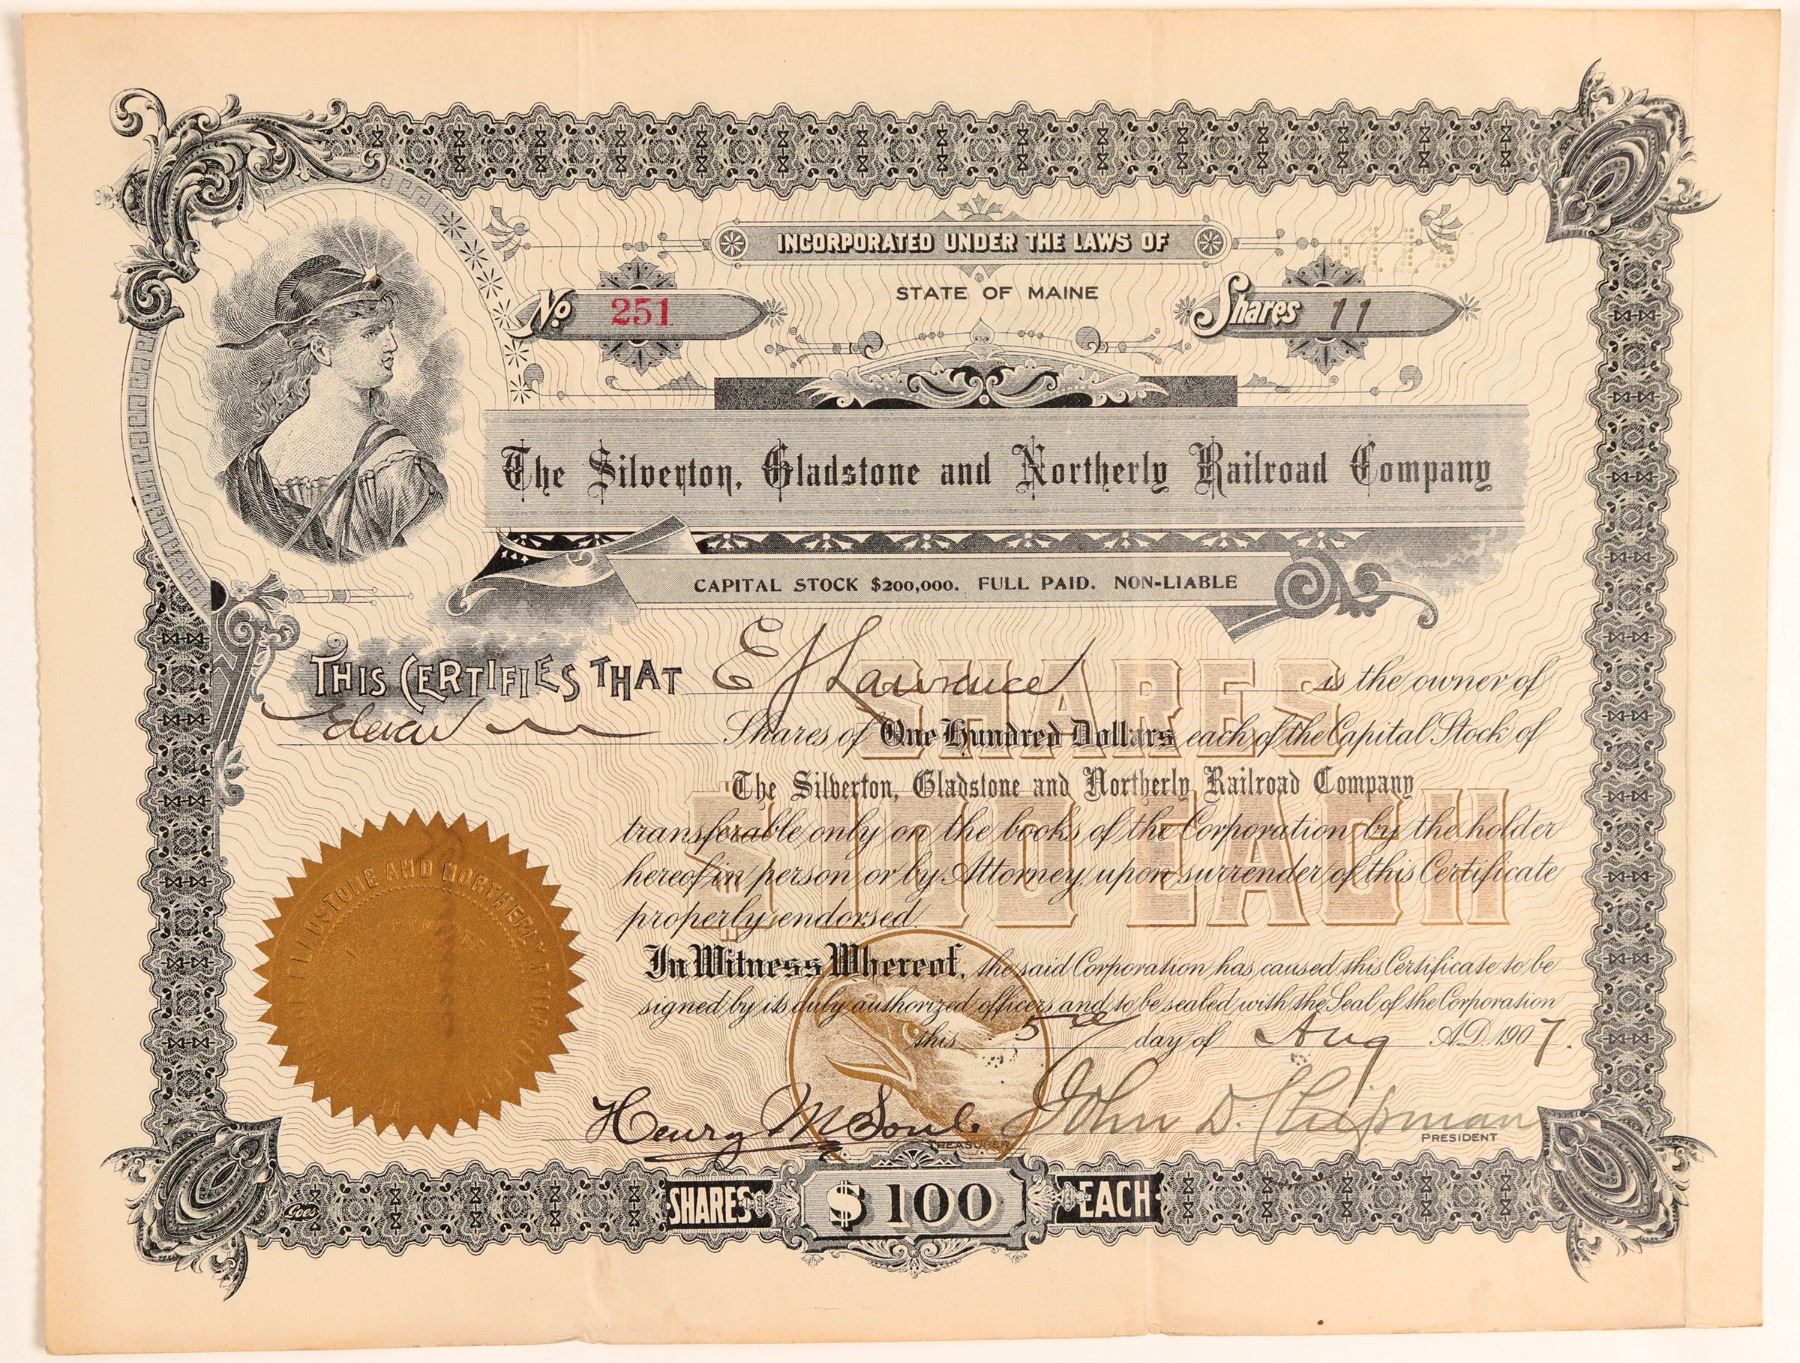 INCORPORATED UNDER THE LAWS OF
STATE OF MAINE
No 251
Shares 11
The Silverton, Gladstone and Northerly Railroad Company
CAPITAL STOCK $200,000. FULL PAID. NON-LIABLE
THIS CERTIFIES THAT E J Lawrence is the owner of
Eleven Shares of One Hundred Dollars each of the Capital Stock of
The Silverton, Gladstone and Northerly Railroad Company
transferable only on the books of the Corporation by the holder
hereof in person or by Attorney upon surrender of this Certificate
properly endorsed.
SHARES
$100 EACH
In Witness Whereof, the said Corporation has caused this Certificate to be
signed by its duly authorized officers and to be sealed with the Seal of the Corporation
this 5th day of Aug A.D. 1907.
GLADSTONE AND NORTHERLY
Henry M Soule John D. Chipman
TREASURER PRESIDENT
Goes
SHARES $100 EACH